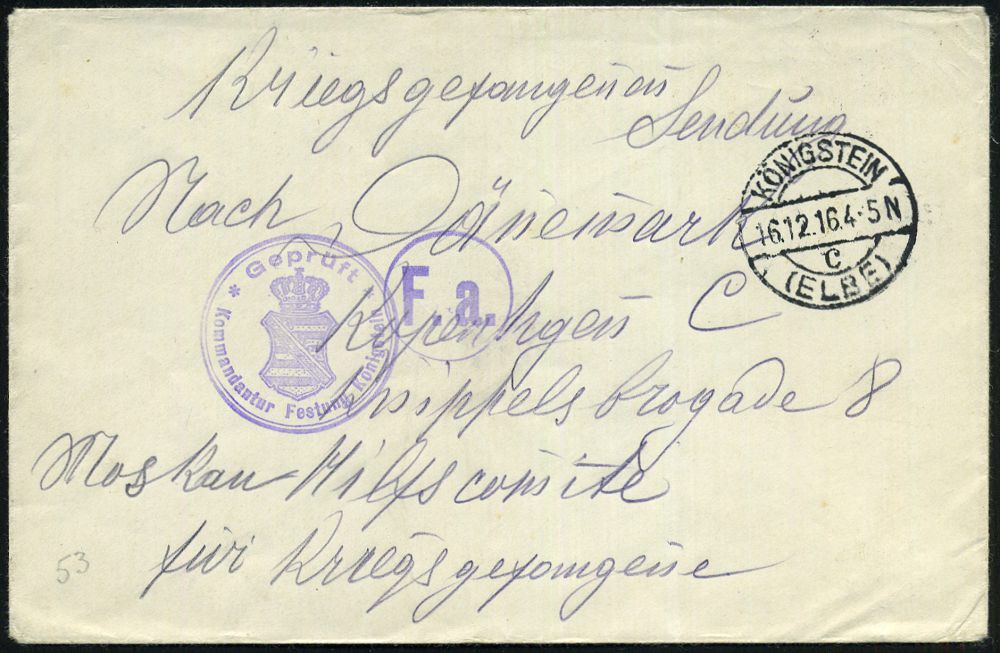 Kriegsgefangenen
Sendung
KÖNIGSTEIN
16.12.16.4-5N
C
(ELBE)
Nach Dänemark
* Geprüft *
Kommandantur Festung Königstein
F. a.
Kopenhagen C
Knippelsbrogade 8
Moskau Hilfscomite
für Kriegsgefangene
53